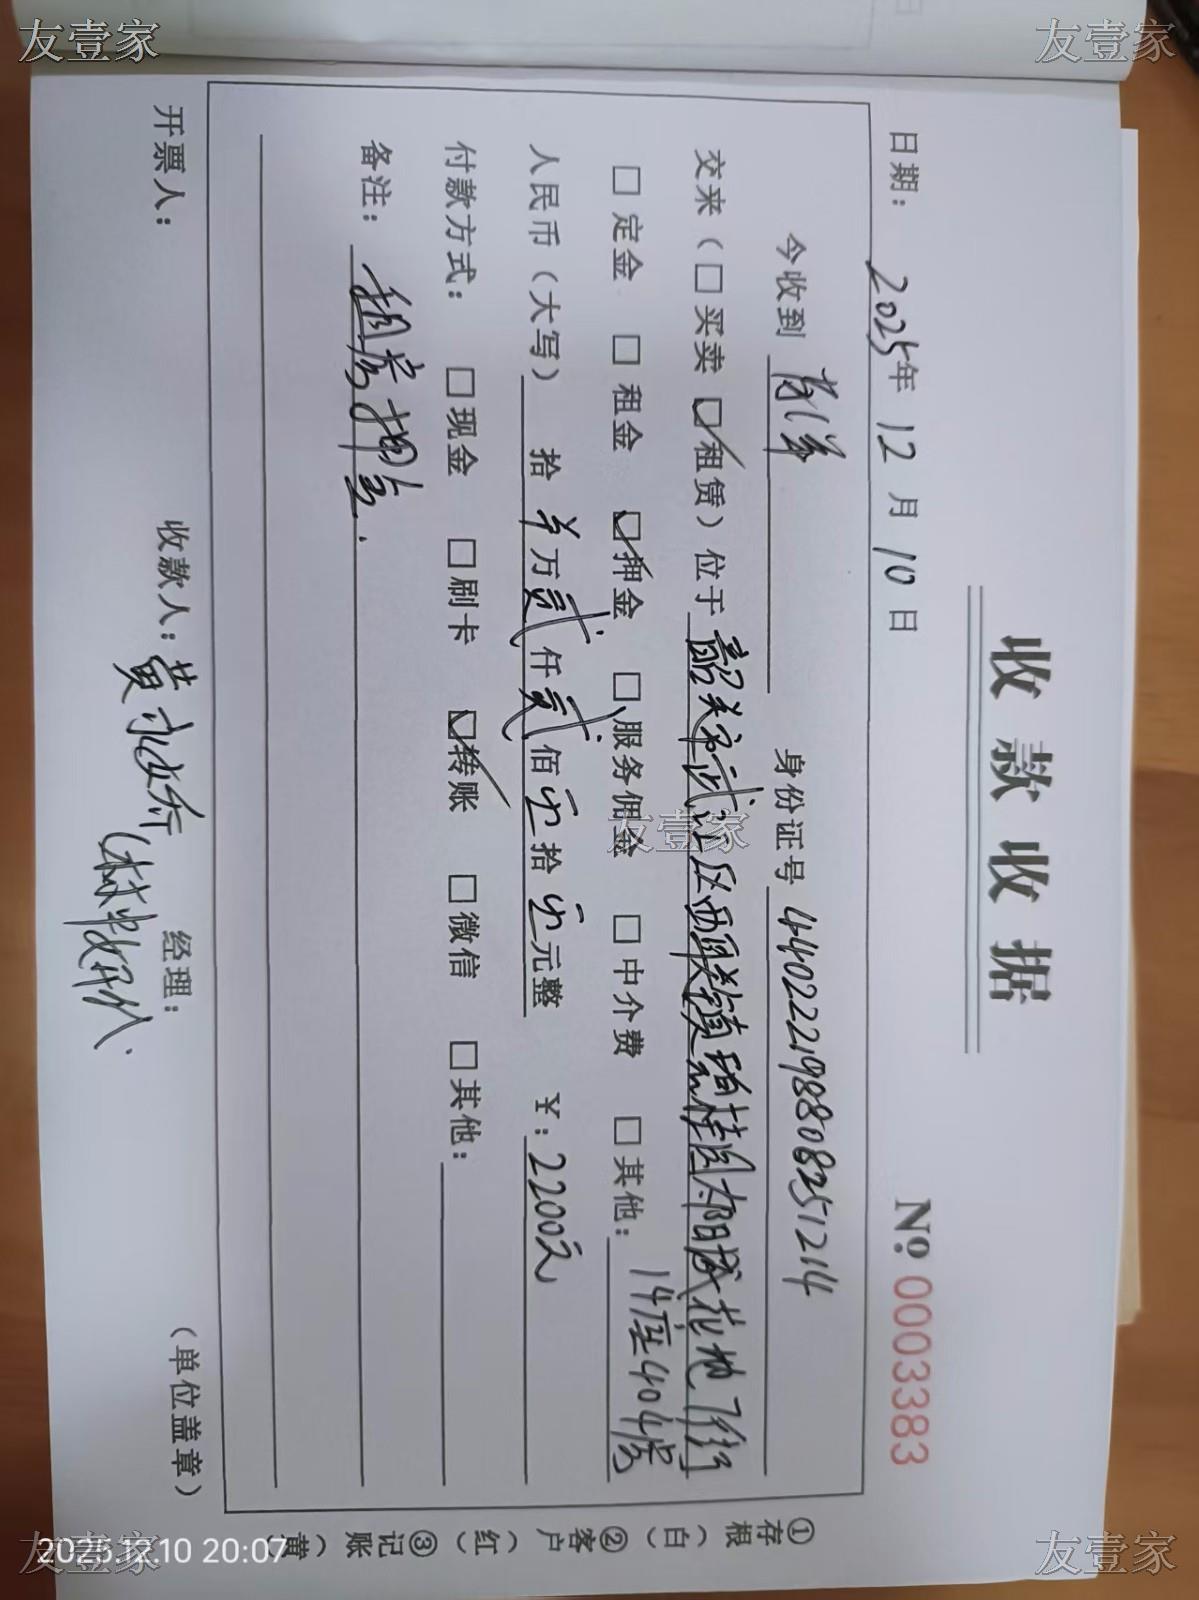 收款收据
No: 0003383
日期： 2025年 12 月 10 日
今收到 身份证号 440222198808251214
交来（□买卖 ☑租赁）位于 韶关市武江区西联镇碧桂园太阳城花地
□定金 □租金 ☑押金 □服务佣金 □中介费 □其他： 14座404房
人民币（大写） 拾 万 贰 仟 贰 佰 零 拾 零 元整 ¥：2200元
付款方式： □现金 □刷卡 ☑转账 □微信 □其他：
备注： 租房押金.
开票人： 收款人：黄 经理： （单位盖章）
①存根（白） ②客户（红） ③记账（黄）
友壹家
友壹家
友壹家
友壹家
友壹家
2025.12.10 20:07